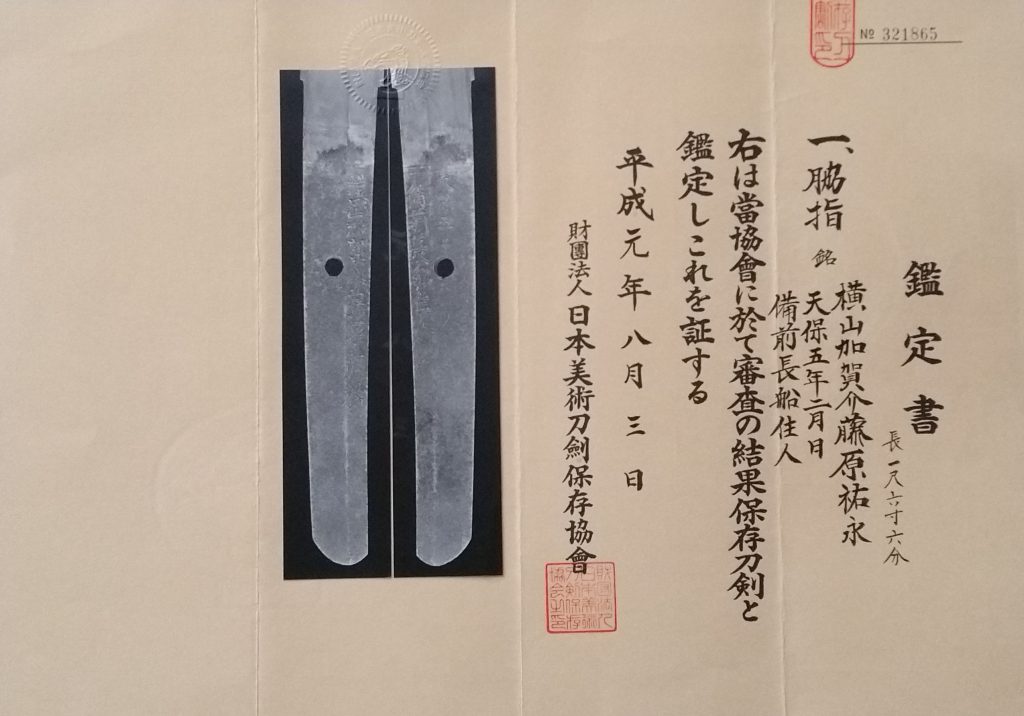 № 321865
鑑定書
一、脇指 銘
長一尺六寸六分
横山加賀介藤原祐永
天保五年二月日
備前長船住人
右は當協會に於て審査の結果保存刀剣と
鑑定しこれを証する
平成元年八月三日
財團法人日本美術刀劍保存協會